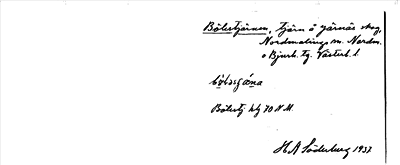 Bölestjärnen, tjärn å Järnäs skog,
Nordmalings sn. Nordm.
o Bjurh. tg. Västerb. l.
Bölestj. hlg 70 N.M.
H A Söderberg 1937.